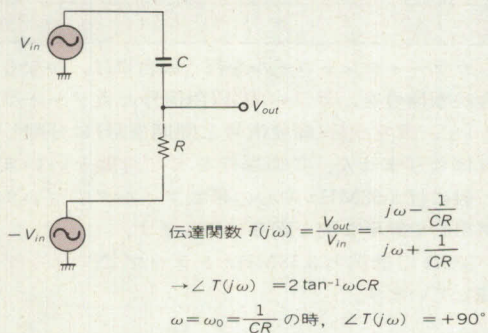 V_in
C
V_out
R
−V_in
伝達関数 T(jω) = V_out / V_in = (jω − 1/CR) / (jω + 1/CR)
→∠T(jω) = 2 tan⁻¹ωCR
ω = ω₀ = 1/CR の時, ∠T(jω) = +90°